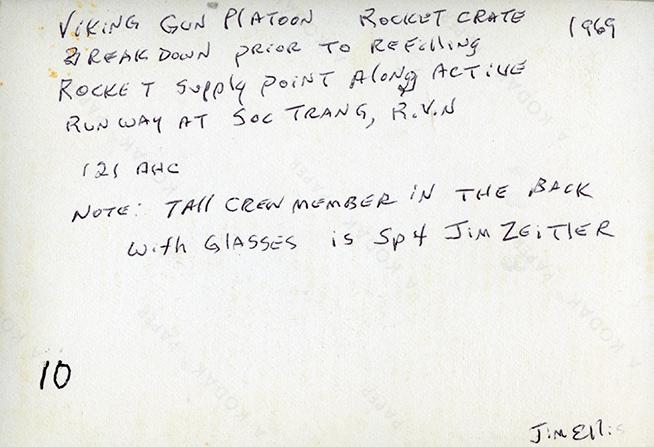 VIKING GUN PLATOON ROCKET CRATE 1969
BREAKDOWN PRIOR TO REFILLING
ROCKET SUPPLY POINT ALONG ACTIVE
RUNWAY AT SOC TRANG, R.V.N
121 AHC
NOTE: TALL CREW MEMBER IN THE BACK
WITH GLASSES is Sp4 JIM ZEITLER
10
Jim Ellis
A KODAK PAPER
A KODAK PAPER
A KODAK PAPER
A KODAK